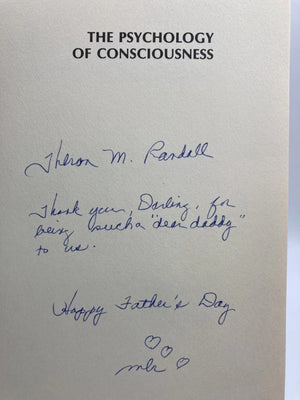 THE PSYCHOLOGY
OF CONSCIOUSNESS
Theron M. Randall
Thank you, Darling, for
being such a "dear daddy"
to us.
Happy Father's Day